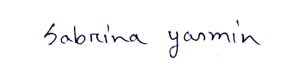 Sabrina yasmin